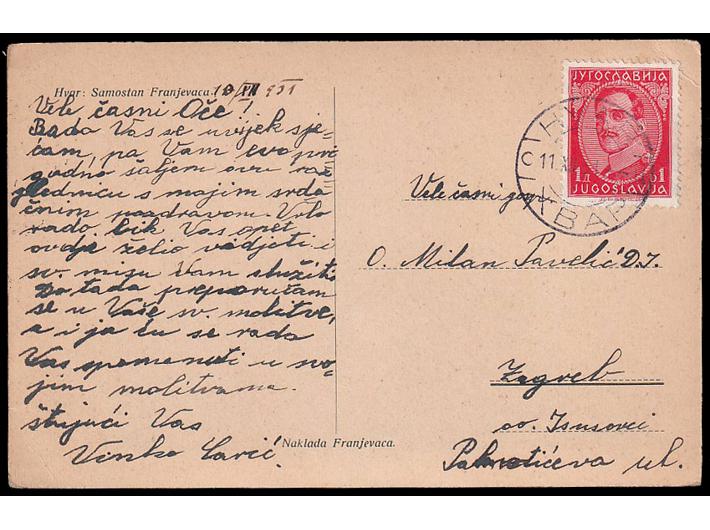 Hvar: Samostan Franjevaca. 10/XII 931
Vele časni Oče!
Rado Vas se uvijek sje-
ćam, pa Vam evo pri
godno šaljem ovu raz
glednicu s mojim srda
čnim pozdravom. Vrlo
rado bih Vas opet
ovdje želio vidjeti i
sv. misu Vam služiti
Do tada preporučam
se u Vaše sv. molitve,
a i ja ću se rado
Vas spomenuti u svo-
jim molitvama.
štujući Vas
Vinko
Naklada Franjevaca.
ЈУГОСЛАВИЈА
1 Д D 1
JUGOSLAVIJA
11.X
ХВАР
Vele časni gosp.
O. Milan Pavelić D.I.
Zagreb
oo. Isusovci
Palmotićeva ul.